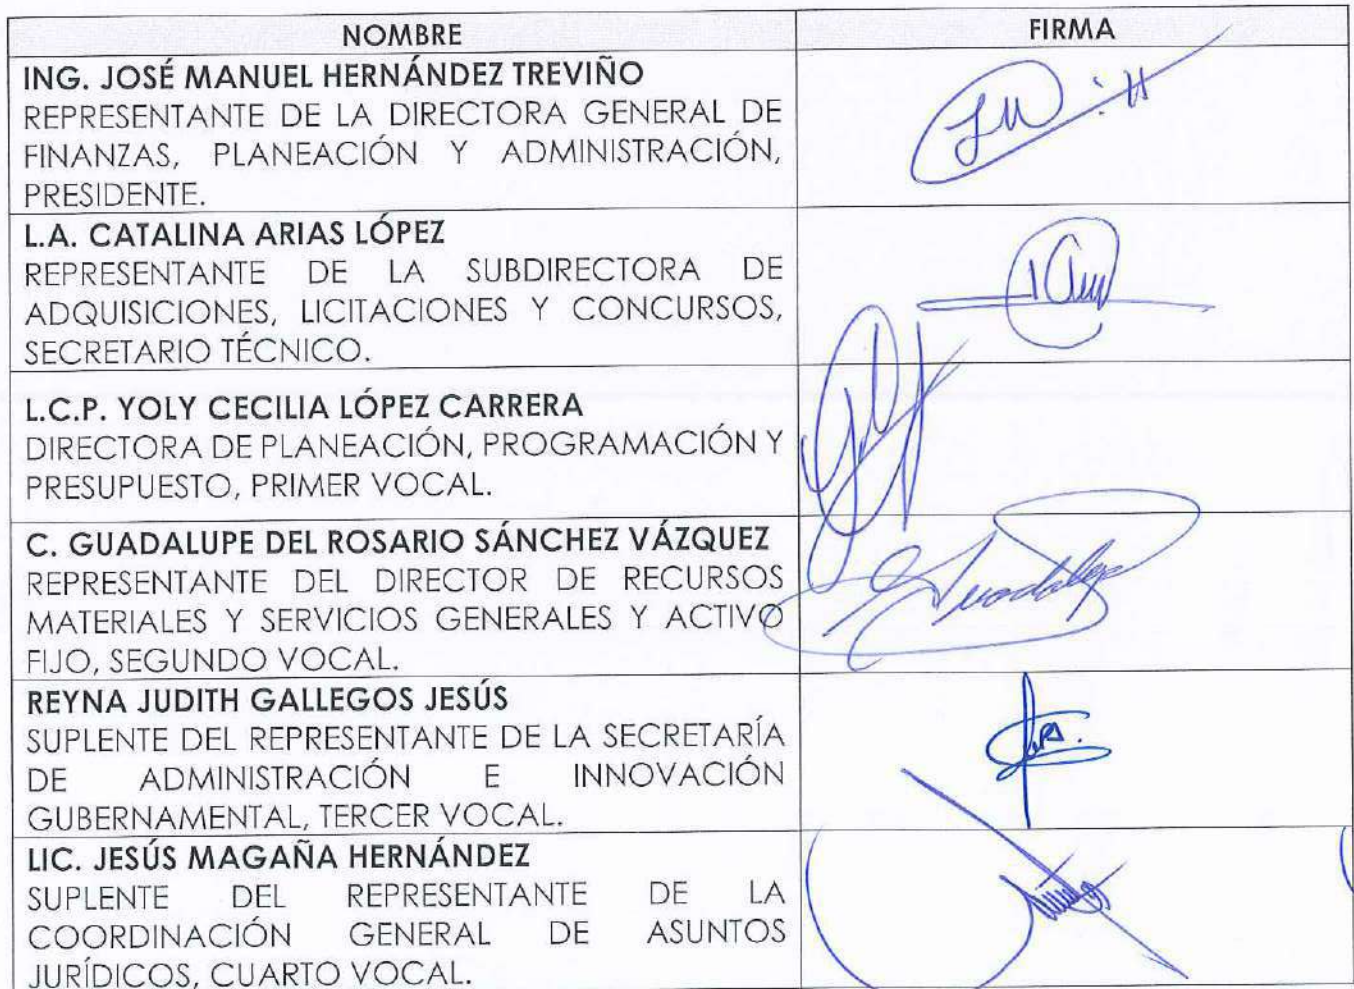 NOMBRE
FIRMA
ING. JOSÉ MANUEL HERNÁNDEZ TREVIÑO
REPRESENTANTE DE LA DIRECTORA GENERAL DE
FINANZAS, PLANEACIÓN Y ADMINISTRACIÓN,
PRESIDENTE.
L.A. CATALINA ARIAS LÓPEZ
REPRESENTANTE DE LA SUBDIRECTORA DE
ADQUISICIONES, LICITACIONES Y CONCURSOS,
SECRETARIO TÉCNICO.
L.C.P. YOLY CECILIA LÓPEZ CARRERA
DIRECTORA DE PLANEACIÓN, PROGRAMACIÓN Y
PRESUPUESTO, PRIMER VOCAL.
C. GUADALUPE DEL ROSARIO SÁNCHEZ VÁZQUEZ
REPRESENTANTE DEL DIRECTOR DE RECURSOS
MATERIALES Y SERVICIOS GENERALES Y ACTIVO
FIJO, SEGUNDO VOCAL.
REYNA JUDITH GALLEGOS JESÚS
SUPLENTE DEL REPRESENTANTE DE LA SECRETARÍA
DE ADMINISTRACIÓN E INNOVACIÓN
GUBERNAMENTAL, TERCER VOCAL.
LIC. JESÚS MAGAÑA HERNÁNDEZ
SUPLENTE DEL REPRESENTANTE DE LA
COORDINACIÓN GENERAL DE ASUNTOS
JURÍDICOS, CUARTO VOCAL.